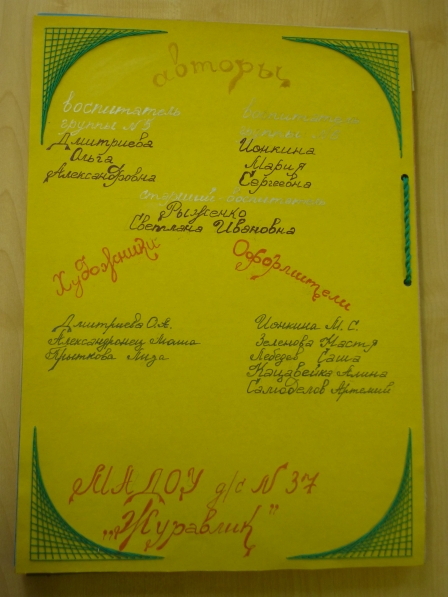 авторы
воспитатель
группы №8
Дмитриева
Ольга
Александровна
воспитатель
группы
Ионкина
Мария
Сергеевна
старший воспитатель
Рыженко
Светлана Ивановна
Художники
Дмитриева О.А.
Александронец Маша
Прыткова Лиза
Оформители
Ионкина М.С.
Зеленова Настя
Лебедев Саша
Кацавейка Алина
Самоделов Артемий
МЛДОУ д/с №37
„Журавлик"